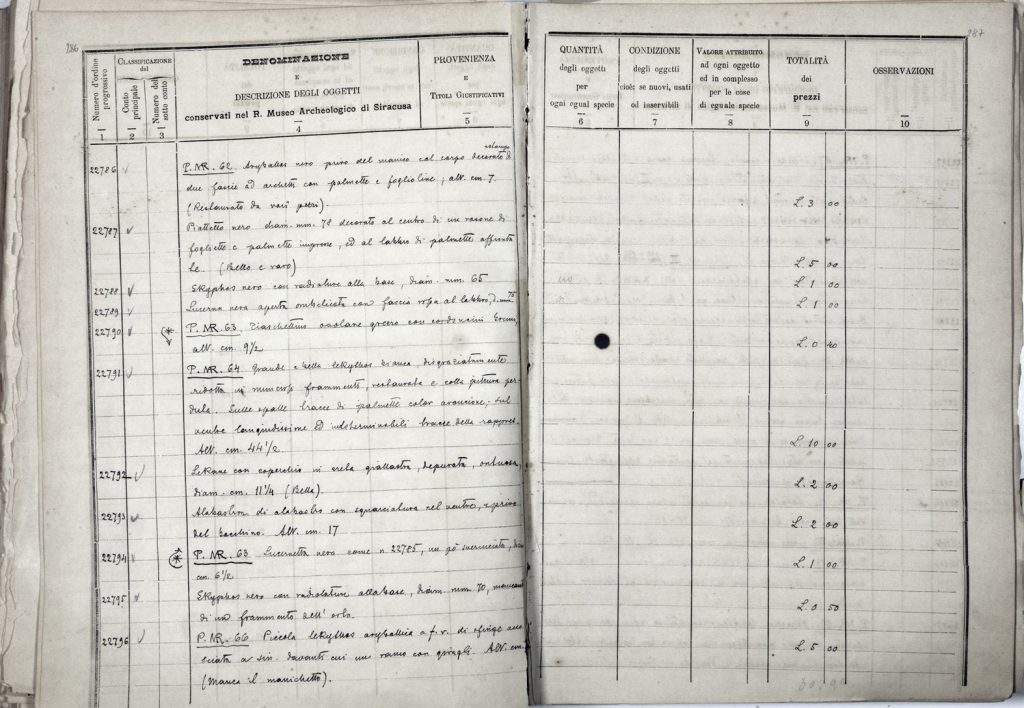 286
287
Numero d'ordine progressivo
1
CLASSIFICAZIONE del
Conto principale
2
Numero del sotto conto
3
DENOMINAZIONE
E
DESCRIZIONE DEGLI OGGETTI
conservati nel R. Museo Archeologico di Siracusa
4
PROVENIENZA
E
TITOLI GIUSTIFICATIVI
5
QUANTITÀ
degli oggetti
per
ogni egual specie
6
CONDIZIONE
degli oggetti
cioè: se nuovi, usati
od inservibili
7
VALORE ATTRIBUITO
ad ogni oggetto
ed in complesso
per le cose
di eguale specie
8
TOTALITÀ
dei
prezzi
9
OSSERVAZIONI
10
22786 P. NR. 62 Aryballos nero privo del manico col corpo decorato
due faccie ad archetti con palmette e foglioline; alt. cm. 7.
(Restaurato da vari pezzi). L. 3 00
22787 Piattello nero diam. mm. 78 decorato al centro di un rosone di
fogliette e palmette impresse, ed al labbro di palmette affronta
te. (Bello e raro) L. 5 00
22788 Skyphos nero con radiature alla base, diam. mm. 65 L. 1 00
22789 Lucerna nera aperta con faccia al labbro, d. mm. 75 L. 1 00
22790 P. NR. 63. Fiaschettino grezzo con
alt. cm. 9 1/2 L. 0 40
22791 P. NR. 64 Grande e bella lekythos bianca, disgraziatamente
ridotta in frammenti, restaurata e colla pittura per-
duta. Sulle spalle tracce di palmette color arancione; sul
ventre languidissime ed indeterminabili tracce della rappres.
Alt. cm. 44 1/2 L. 10 00
22792 Lekane con coperchio in creta giallastra, depurata,
diam. cm. 11 1/4 (Bella). L. 2 00
22793 Alabastron di alabastro con squarciatura nel ventre, e privo
del bocchino. Alt. cm. 17 L. 2 00
22794 P. NR. 63 Lucernetta nera come n. 22785, un pò
cm. 6 1/2 L. 1 00
22795 Skyphos nero con radiature alla base, diam. mm. 70,
di un frammento dell'orlo. L. 0 50
22796 P. NR. 66 Piccola lekythos aryballica a f. r. di sfinge
sciata a sin. davanti cui un ramo con Alt. cm.
(Manca il manichetto). L. 5 00